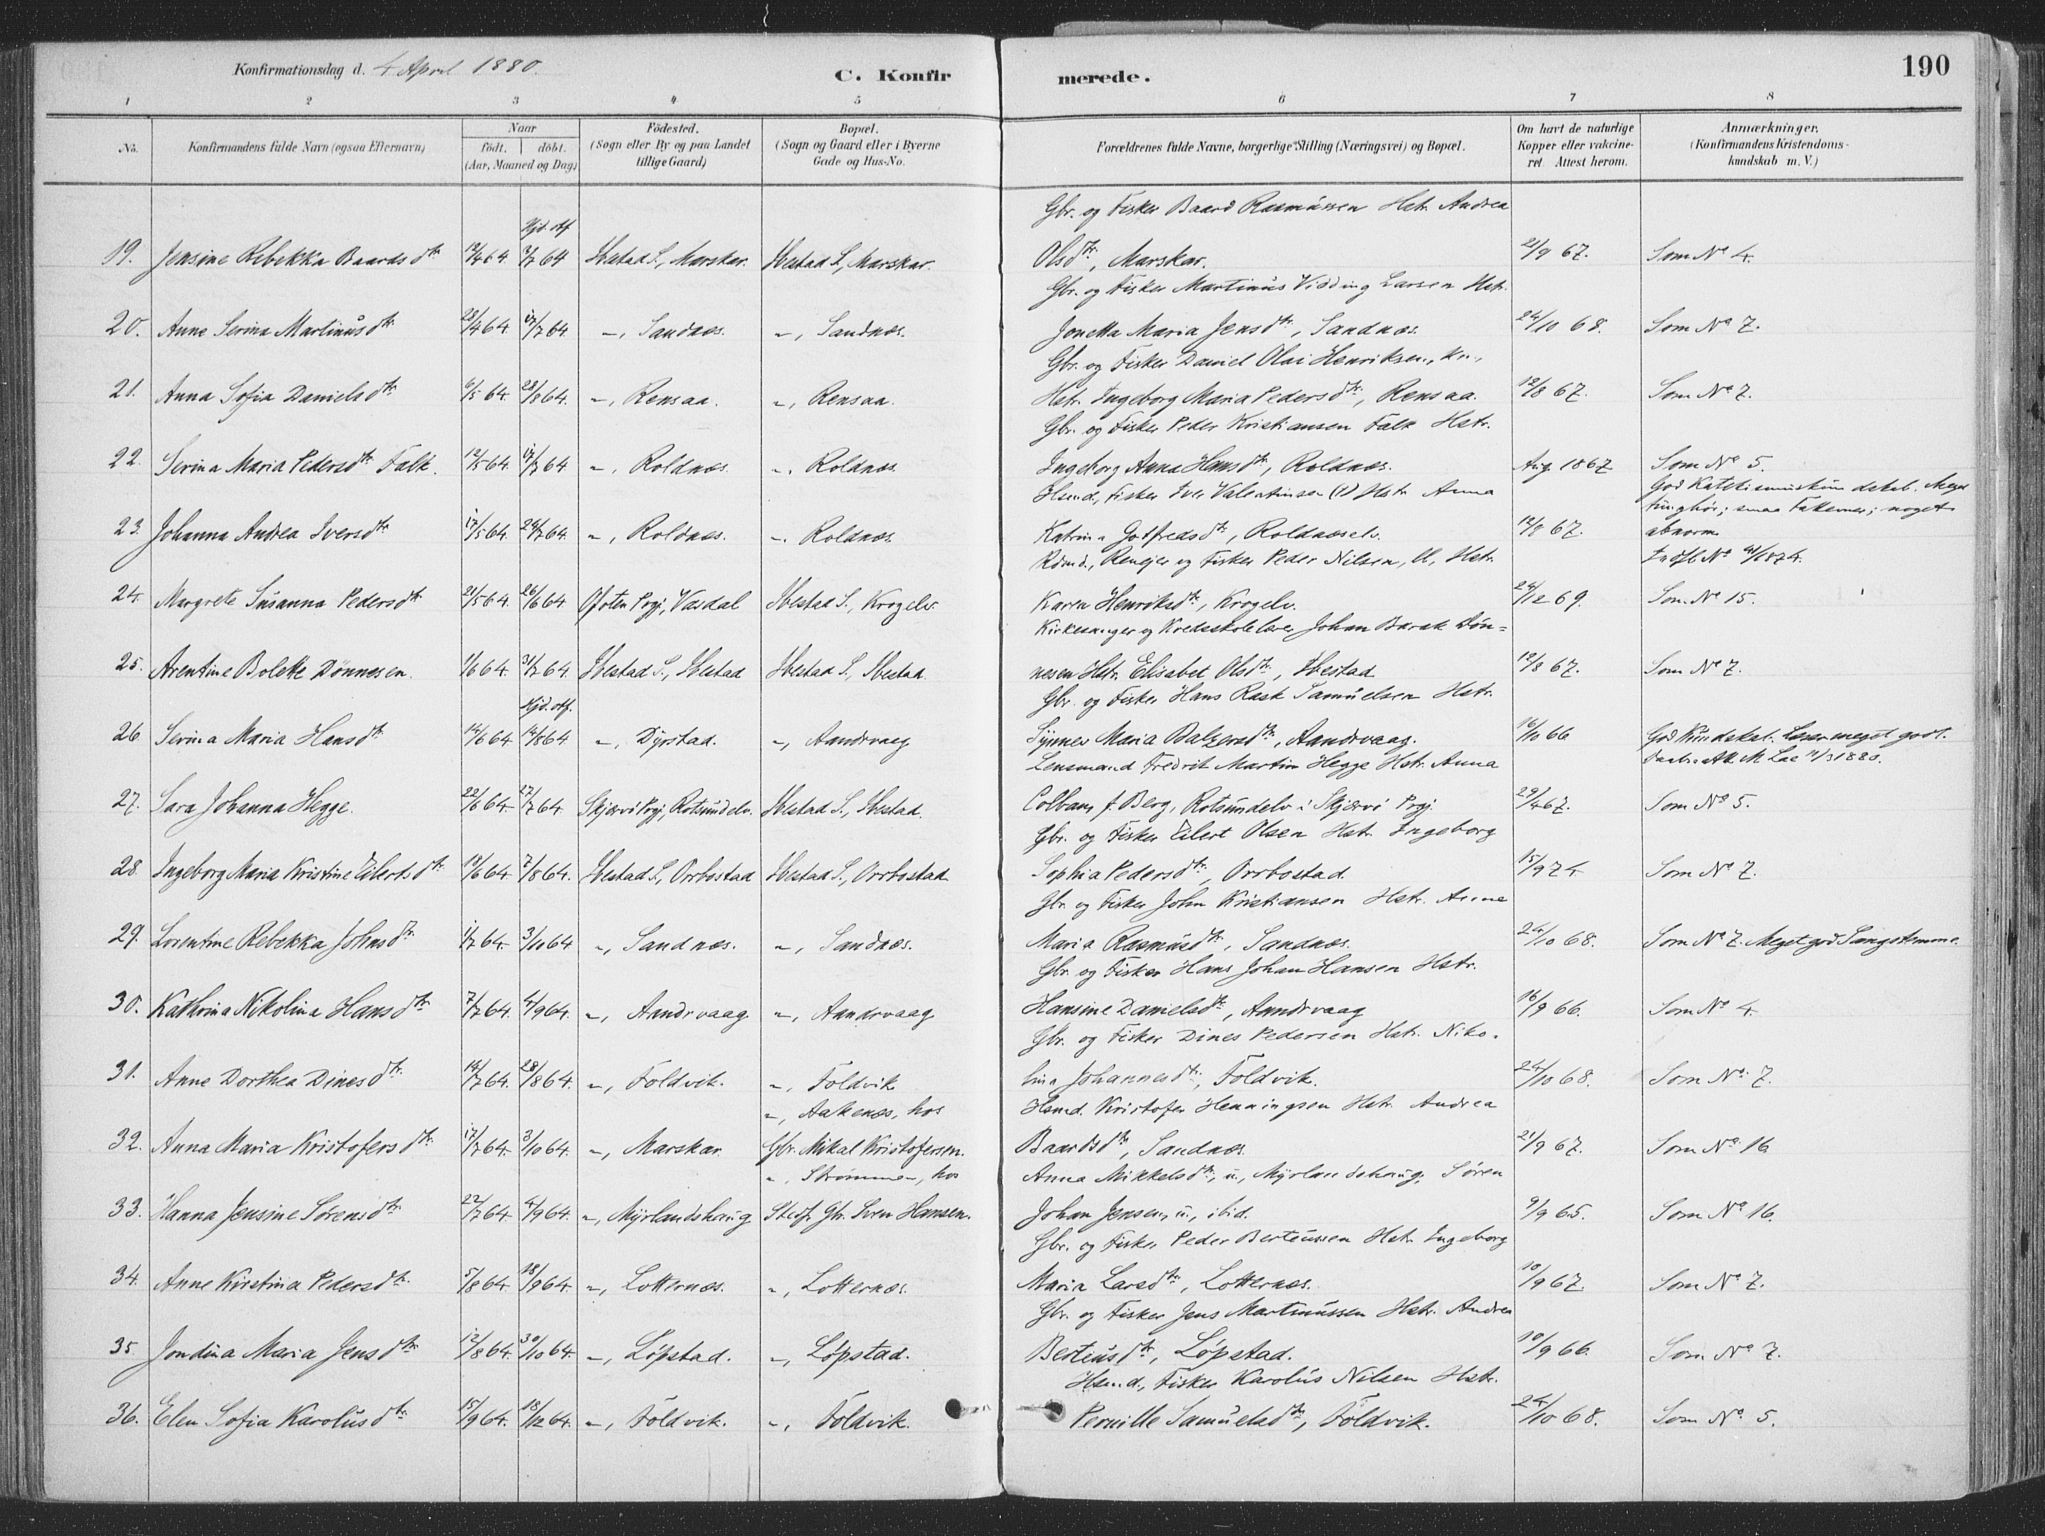 Konfirmationsdag d. 4 April 1880.
C. Konfir
merede.
190
1 2 3 4 5 6 7 8
No. Konfirmandens fulde Navn (ogsaa Efternavn) Naar født. døbt. (Aar, Maaned og Dag) Fødested. (Sogn eller By og paa Landet tillige Gaard) Bopæl. (Sogn og Gaard eller i Byerne Gade og Hus-No. Forældrenes fulde Navne, borgerlige Stilling (Næringsvei) og Bopæl. Om havt de naturlige Kopper eller vakcineret. Attest herom. Anmærkninger. (Konfirmandens Kristendomskundskab m. V.)
Gbr. og Fisker Baard Rasmussen Hstr. Andrea
Hjd. døf
19. Jensine Rebekka Baardsdtr 64. 64 Ibestad S., Marskar. Ibestad S., Marskar. Olsdtr., Marskar. 21/9 67. Som No 4.
Gbr. og Fisker Martinus Vidding Larsen Hstr.
20. Anne Serina Martinusdtr. 64 17/7 64 -"-, Sandnæs. -"-, Sandnæs. Jonetta Maria Jensdtr., Sandnæs. 24/10 68. Som No 7.
Gbr. og Fisker Daniel Olai Henriksen, kv.,
21. Anna Sofia Danielsdtr. 6/5 64. 28/8 64. -"-, Rensaa. -"-, Rensaa. Hstr. Ingeborg Maria Pedersdtr., Rensaa. 12/8 67. Som No 7.
Gbr. og Fisker Peder Kristiansen Falk Hstr.
22. Serina Maria Pedersdtr Falk. 12/5 64. 17/7 64 -"-, Roldnæs. -"-. Roldnæs. Ingeborg Anna Hansdtr., Roldnæs. Aug 1867 Som No 5.
Hsmd., Fisker Iver Valentinsen (†) Hstr Anna God Katekismuskundskab. Meget
23. Johanna Andrea Iversdtr 17/5 64. 24/7 64. -"-, Roldnæs. -"-. Roldnæs. Katrina Godtfredsdtr., Roldnæselv. 12/8 67. tunghør; smaa Fakerner; noget abnorm.
Rdmd., Reneier og Fisker Peder Nilsen, Hstr. Indfl. No
24. Margrete Susanna Pedersdtr 21/5 64. 26/6 64 Ofoten Pgj., Vasdal Ibestad S., Krogelv. Karen Henriksdtr., Krogelv. 24/12 69. Som No 15.
Kirkesanger og Kredsskolelærer Johan Barak Døn=
25. Arentine Bolette Dønnesen. 1/6 64. 31/7 64. Ibestad S., Ibestad Ibestad S., Ibestad. nesen Hstr. Elisabet Olsdtr., Ibestad 12/8 67. Som No 7.
Gbr. og Fisker Hans Rask Samuelsen Hstr.
Hjd. døf.
26. Serina Maria Hansdtr 14/6 64 14/8 64 -"-, Dyrstad. -"-, Aandrvaag Synner Maria Balzersdtr., Aandrvaag. 16/10 66 God Kundskab. Læser meget godt.
Lensmand Fredrik Martin Hegge Hstr. Anna
27. Sara Johanna Hegge. 22/6 64. 27/7 64. Skjærvø Pgj., Rotsundelv. Ibestad S., Ibestad. Colban f. Berg, Rotsundelv i Skjærvø Pgj. 29/4 67. Som No 5.
Gbr. og Fisker Eilert Olsen Hstr. Ingeborg
28. Ingeborg Maria Kristine Eilertsdtr. 19/6 64. 7/8 64. Ibestad S., Orrbostad Ibestad S., Orrbostad Sophia Pedersdtr., Orrbostad. 15/9 74. Som No 7.
Gbr. og Fisker John Kristiansen Hstr. Anne
29. Lorentine Rebekka Johnsdtr. 1/7 64. 3/10 64 -"-, Sandnæs. -"-, Sandnæs. Maria Rasmusdtr., Sandnæs. 24/10 68. Som No 7. Meget god Sangstemme.
Gbr. og Fisker Hans Johan Hansen Hstr.
30. Kathrina Nikolina Hansdtr. 7/7 64. 4/9 64. -"-, Aandrvaag. -"-, Aandrvaag Hansine Danielsdtr., Aandrvaag 16/9 66. Som No 4.
Gbr. og Fisker Dines Pedersen Hstr. Niko-
31. Anne Dorthea Dinesdtr. 14/7 64. 28/8 64. -"-, Foldvik. -"-, Foldvik lina Johannesdtr., Foldvik. 24/10 68. Som No. 7.
-"-, Aakenes, hos Hsmd. Kristofer Henningsen Hstr. Andrea
32. Anna Maria Kristofersdtr. 17/7 64. 3/10 64. -"-, Marskar. Gbr. Mikal Kristofersen. Baardsdtr., Sandnæs. 21/9 67. Som No 16
-"-, Strømmen, hos Anna Mikkelsdtr., u., Myrlandshaug, Søren
33. Hanna Jensine Sørensdtr. 22/7 64. 4/9 64. -"-, Myrlandshaug Stedf. Gbr. Sven Hansen. Johan Jensen, u., ibid. 9/9 65. Som No 16.
Gbr. og Fisker Peder Berteussen Hstr. Ingeborg
34. Anne Kirstina Pedersdtr. 5/8 64. 18/9 64. -"-, Lotternæs. -"-, Lotternæs. Maria Larsdtr., Lotternæs. 10/9 67. Som No 7.
Gbr. og Fisker Jens Martinussen Hstr. Andrea
35 Jondina Maria Jensdtr. 12/8 64. 30/10 64. -"-, Løpstad. -"-, Løpstad. Berteusdtr., Løpstad. 10/9 66. Som No 7.
Hsmd., Fisker Karolus Nilsen Hstr.
36. Elen Sofia Karolusdtr. 15/9 64. 18/12 64. -"-, Foldvik. -"-, Foldvik. Pernille Samuelsdtr., Foldvik. 24/10 68. Som No. 5.